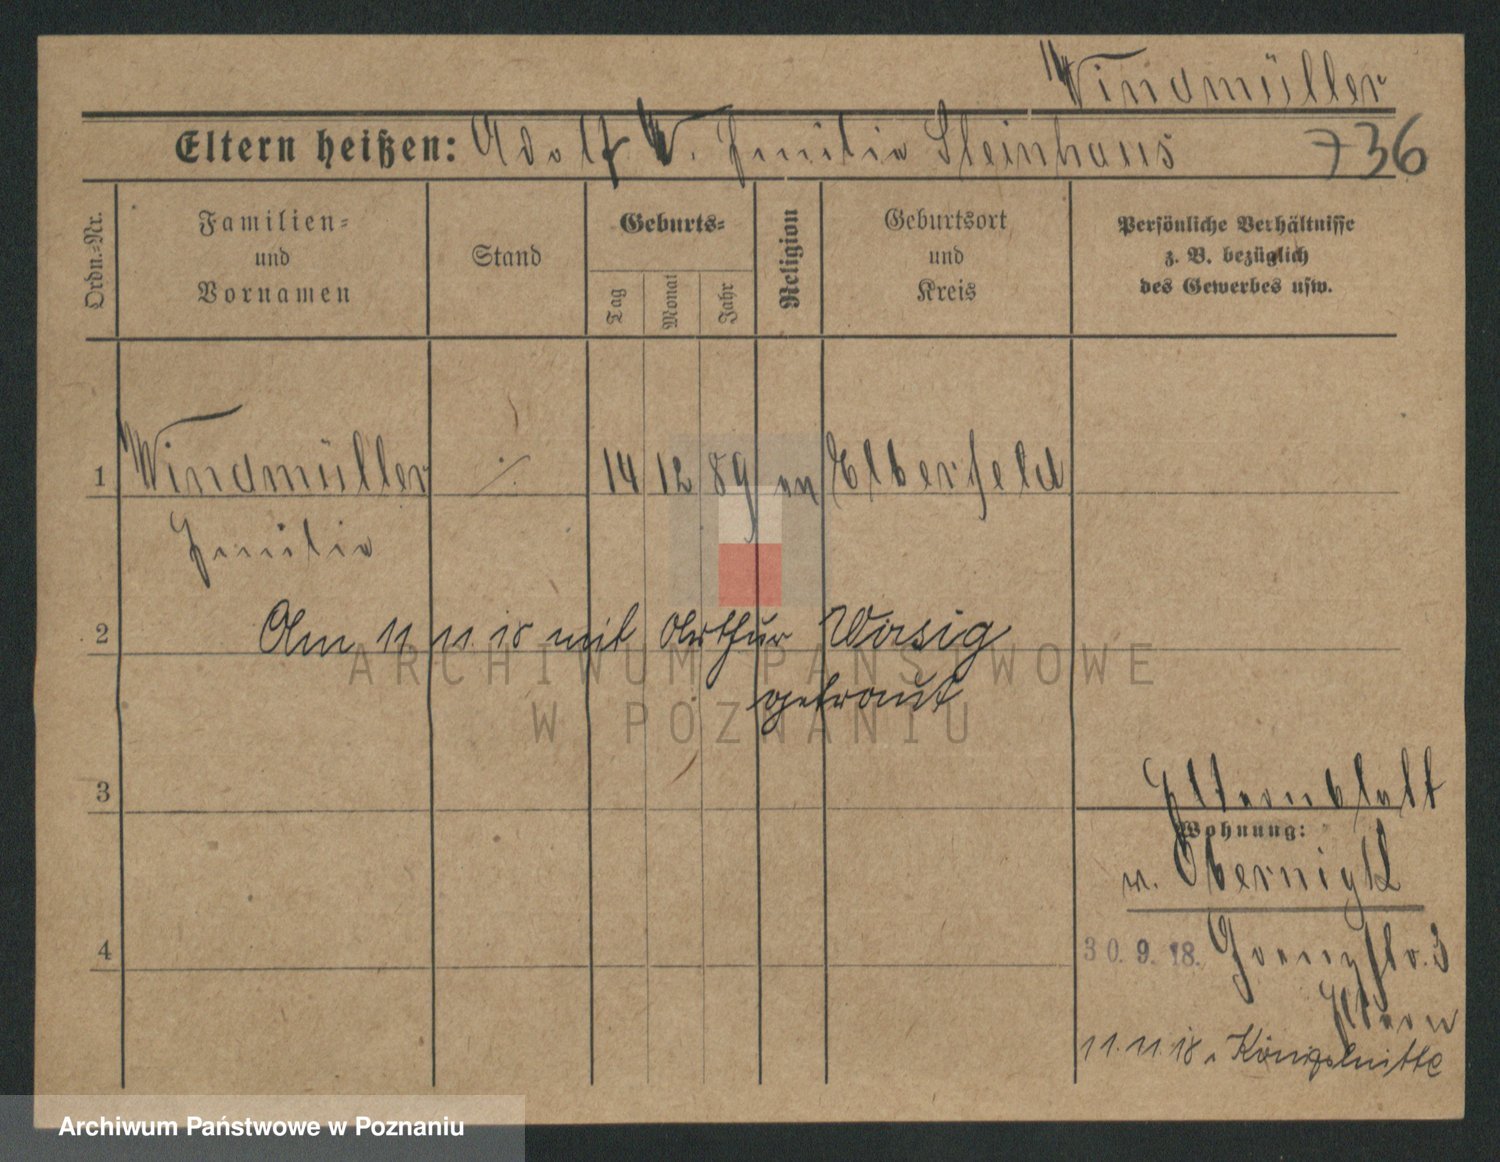 Windmüller
Eltern heißen: Adolf W. Emilie Steinhaus 736
Ordn.-Nr.
Familien-
und
Vornamen
Stand
Geburts-
Tag
Monat
Jahr
Religion
Geburtsort
und
Kreis
Persönliche Verhältnisse
z. B. bezüglich
des Gewerbes usw.
1 Windmüller ./. 14 12 89 ev Elberfeld
Emilie
2 Am 11 11. 18 mit Arthur Wirsig
getraut
3
Elternblatt
Wohnung:
n. Obernigk
4
30. 9. 18. str. 3
Eltern
11. 11. 18
ARCHIWUM PAŃSTWOWE
W POZNANIU
Archiwum Państwowe w Poznaniu